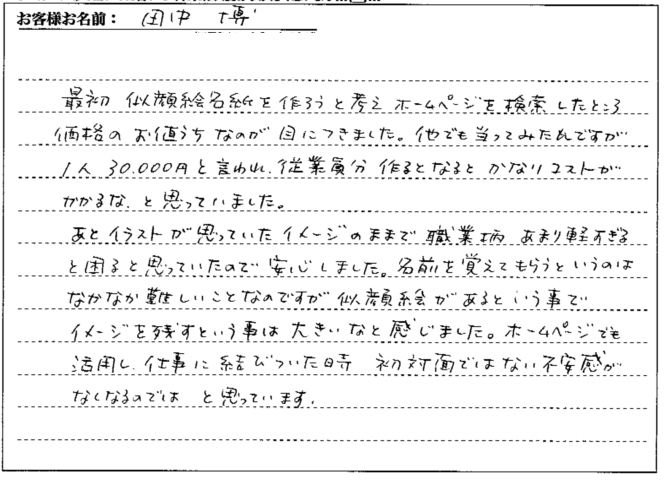 お客様お名前： 田中 博
最初 似顔絵名紙を作ろうと考え ホームページを検索したところ
価格のお値うちなのが目につきました。他でも当ってみたんですが
1人 30.000円と言われ、従業員分 作るとなると かなりコストが
かかるな、と思っていました。
あとイラストが思っていたイメージのままで 職業柄 あまり軽すぎる
と困ると思っていたので安心しました。名前を覚えてもらうというのは
なかなか難しいことなのですが 似顔絵があるという事で
イメージを残すという事は 大きいなと感じました。ホームページでも
活用し、仕事に結びついた時 初対面ではない不安感が
なくなるのでは と思っています.